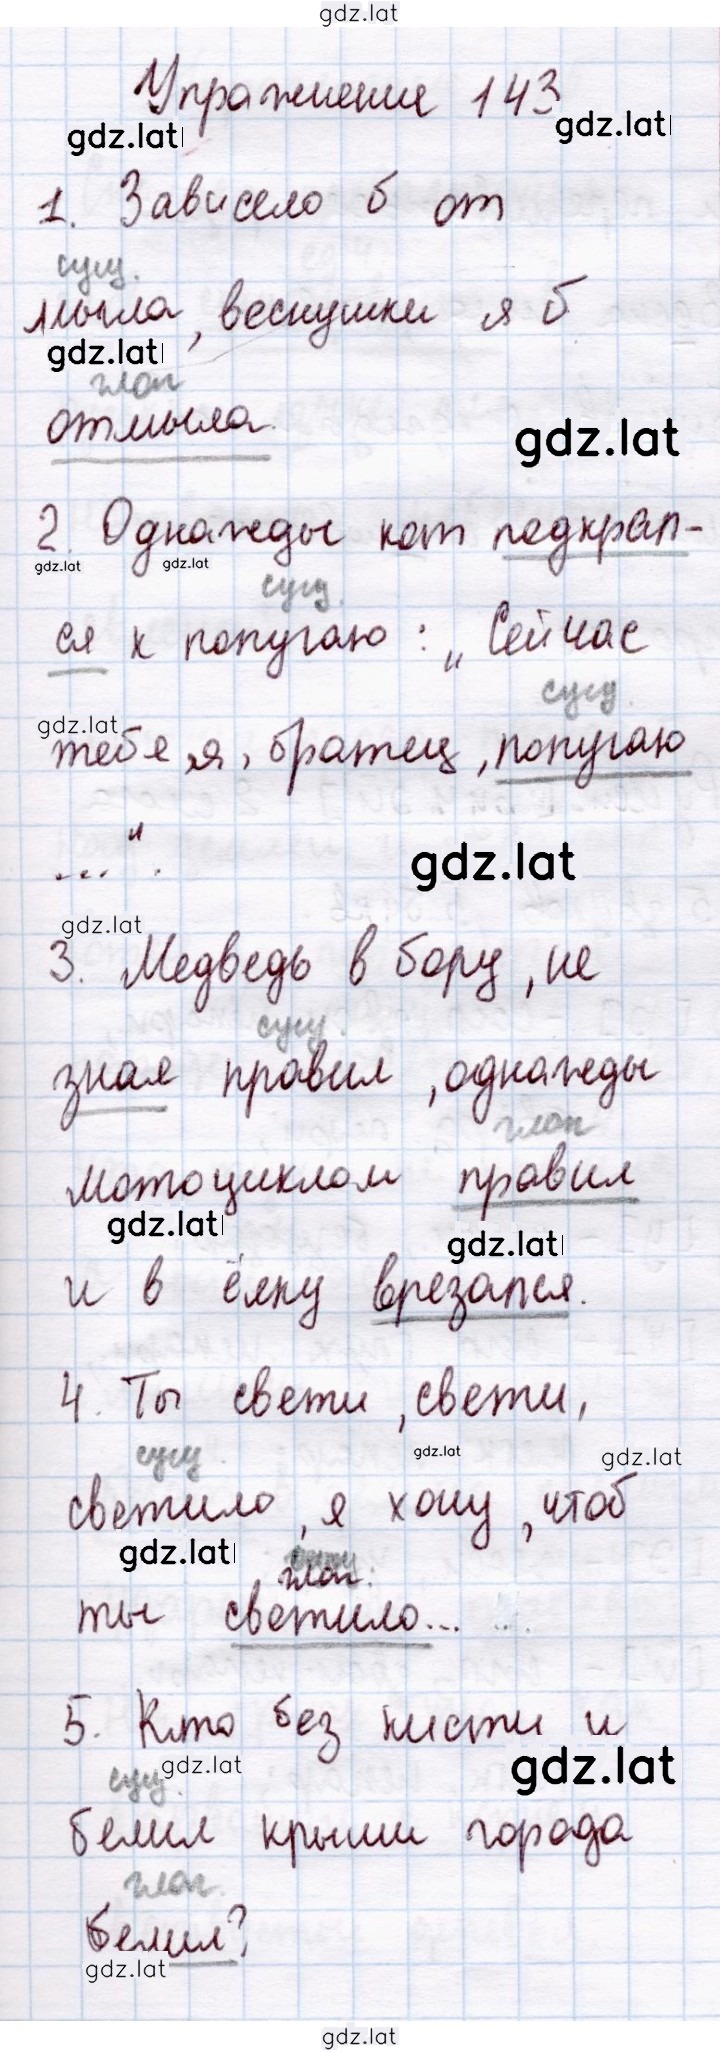 gdz.lat
Упражнение 143
gdz.lat gdz.lat
1. Зависело б от
сущ.
мыла, веснушки я б
gdz.lat
глаг
отмыла.
gdz.lat
2. Однажды кот подкрал-
gdz.lat gdz.lat
сущ.
ся к попугаю: „Сейчас
сущ.
gdz.lat
тебя, я, братец, попугаю
..."
gdz.lat
gdz.lat
3. Медведь в бору, не
сущ.
зная правил, однажды
глаг
мотоциклом правил
gdz.lat gdz.lat
и в ёлку врезался.
4. Ты свети, свети,
сущ. gdz.lat gdz.lat
светило, я хочу, чтоб
gdz.lat
глаг.
ты светило...
5. Кто без кисти и
сущ. gdz.lat gdz.lat
белил крыши города
глаг.
белил?
gdz.lat
gdz.lat